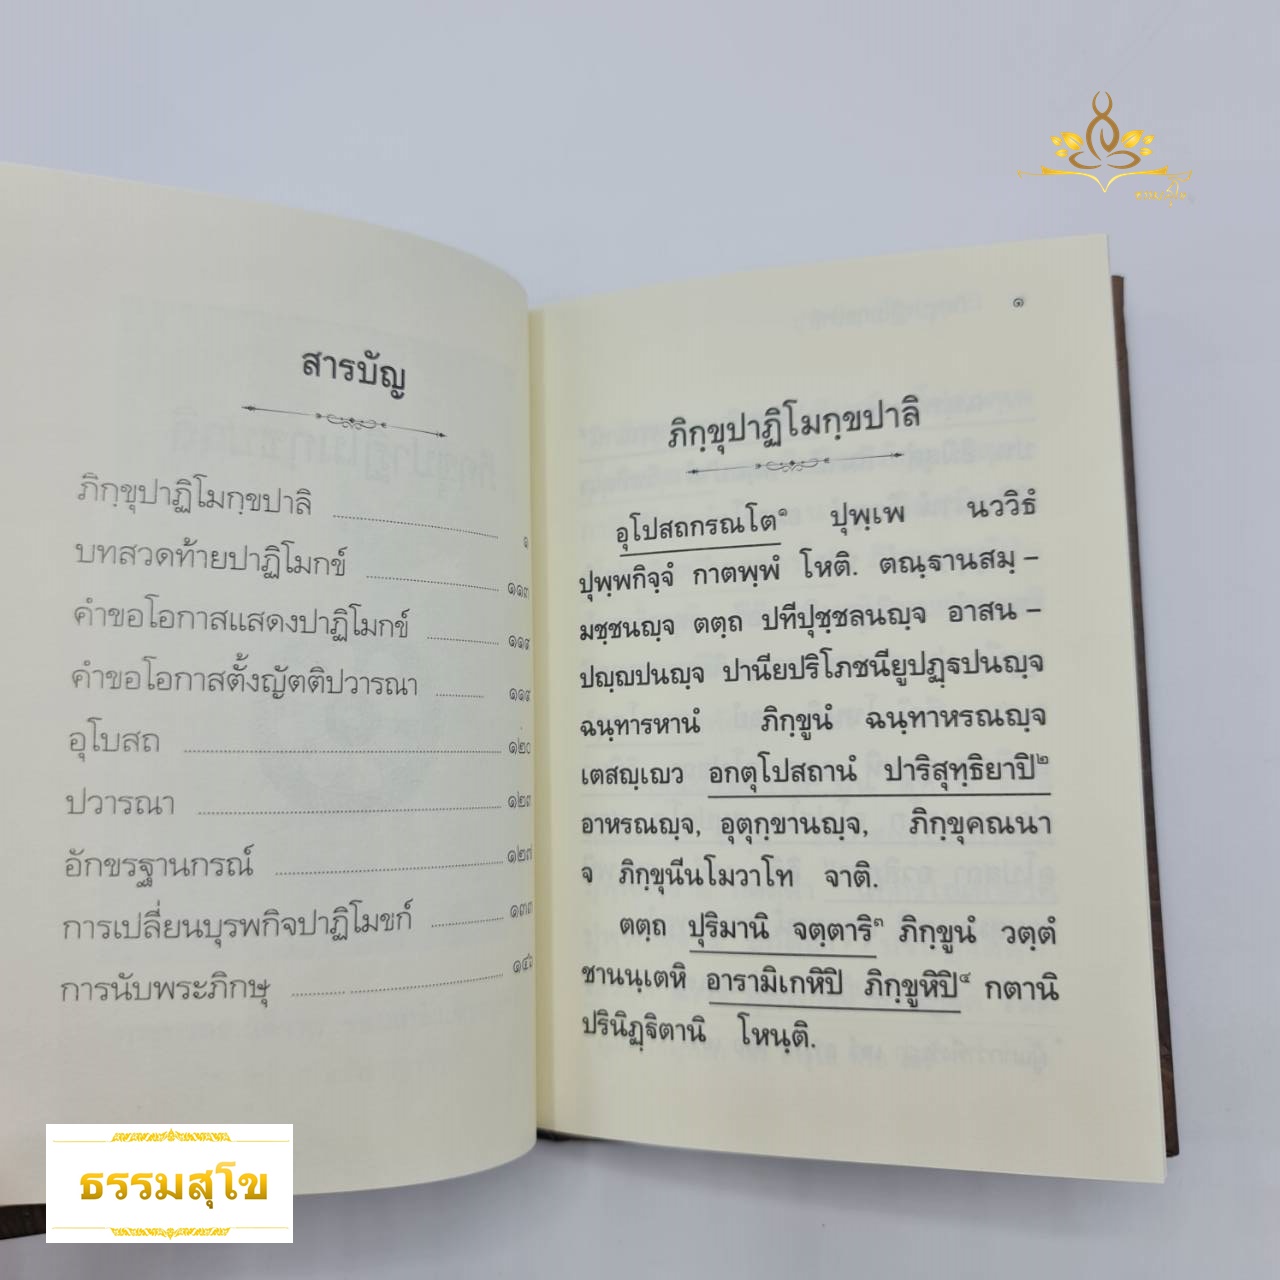 สารบัญ
ภิกฺขุปาฏิโมกฺขปาลิ ๑
บทสวดท้ายปาฏิโมกข์ ๑๑๓
คำขอโอกาสแสดงปาฏิโมกข์ ๑๑๙
คำขอโอกาสตั้งญัตติปวารณา ๑๑๙
อุโบสถ ๑๒๐
ปวารณา ๑๒๓
อักขรฐานกรณ์ ๑๒๗
การเปลี่ยนบุรพกิจปาฏิโมขก์ ๑๓๓
การนับพระภิกษุ
ธรรมสุโข
๑
ภิกฺขุปาฏิโมกฺขปาลิ
อุโปสถกรณโต๑ ปุพฺเพ นววิธํ
ปุพฺพกิจฺจํ กาตพฺพํ โหติ. ตณฺฐานสมฺ –
มชฺชนญฺจ ตตฺถ ปทีปุชฺชลนญฺจ อาสน –
ปญฺญปนญฺจ ปานียปริโภชนียูปฏฺฐปนญฺจ
ฉนฺทารหานํ ภิกฺขูนํ ฉนฺทาหรณญฺจ
เตสญฺเญว อกตุโปสถานํ ปาริสุทฺธิยาปิ๒
อาหรณญฺจ, อุตุกฺขานญฺจ, ภิกฺขุคณนา
จ ภิกฺขุนีนโมวาโท จาติ.
ตตฺถ ปุริมานิ จตฺตาริ๓ ภิกฺขูนํ วตฺตํ
ชานนฺเตหิ อารามิเกหิปิ ภิกฺขูหิปิ๔ กตานิ
ปรินิฏฺฐิตานิ โหนฺติ.